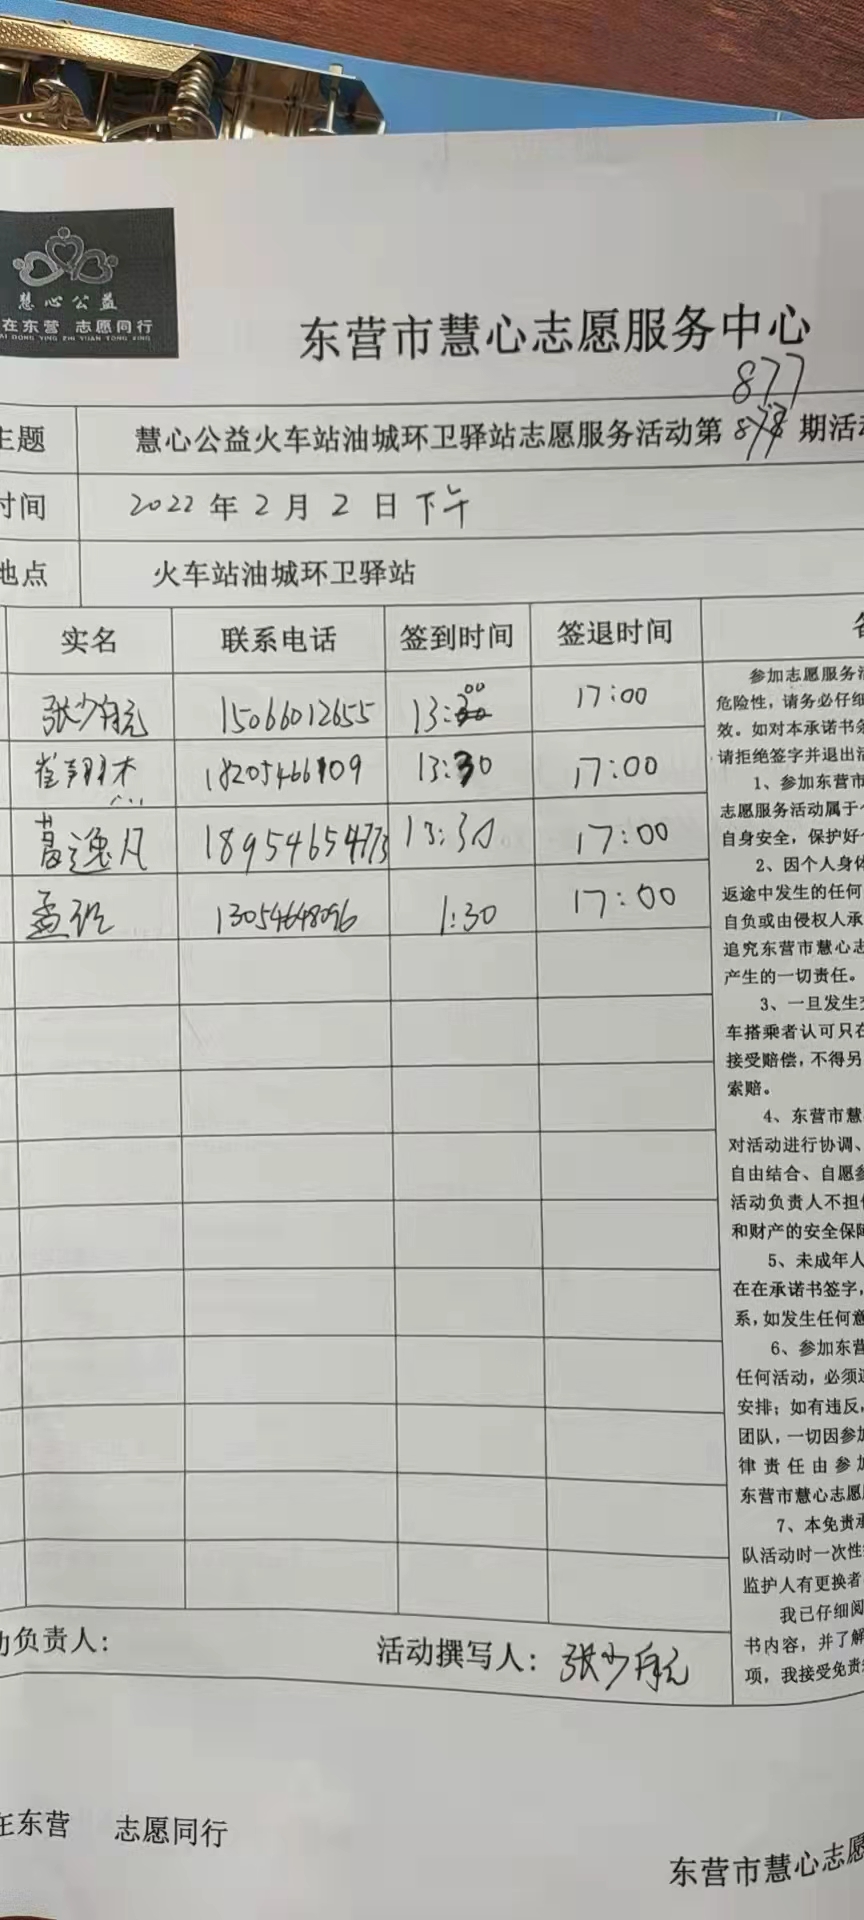 慧心公益
在东营 志愿同行
AI DONG YING ZHI YUAN TONG XING
东营市慧心志愿服务中心
877
主题 慧心公益火车站油城环卫驿站志愿服务活动第 期活动
时间 2022年2月2日下午
地点 火车站油城环卫驿站
实名 联系电话 签到时间 签退时间
15066012655 13:00 17:00
18205466109 13:30 17:00
逸凡 18954654773 13:30 17:00
孟 13054648096 1:30 17:00
参加志愿服务活
危险性，请务必仔细
效。如对本承诺书条
请拒绝签字并退出活
1、参加东营市
志愿服务活动属于个
自身安全，保护好个
2、因个人身体
返途中发生的任何
自负或由侵权人承
追究东营市慧心志
产生的一切责任。
3、一旦发生交
车搭乘者认可只在
接受赔偿，不得另
索赔。
4、东营市慧
对活动进行协调、
自由结合、自愿参
活动负责人不担
和财产的安全保障
5、未成年人
在在承诺书签字，
系，如发生任何意
6、参加东营
任何活动，必须
安排；如有违反，
团队，一切因参加
律责任由参加
东营市慧心志愿
7、本免责承
队活动时一次性
监护人有更换者
我已仔细阅
书内容，并了解
项，我接受免责
动负责人： 活动撰写人：张少
在东营 志愿同行
东营市慧心志愿